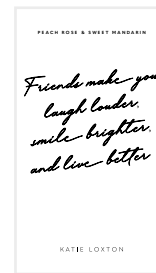 PEACH ROSE & SWEET MANDARIN
Friends make you
laugh louder,
smile brighter,
and live better
KATIE LOXTON